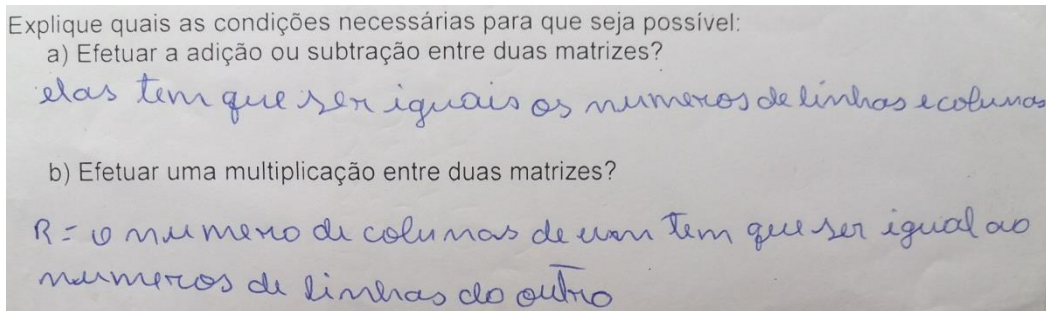 Explique quais as condições necessárias para que seja possível:
a) Efetuar a adição ou subtração entre duas matrizes?
elas tem que ser iguais os numeros de linhas e colunas
b) Efetuar uma multiplicação entre duas matrizes?
R = o numero de colunas de um tem que ser igual ao
numeros de linhas do outro